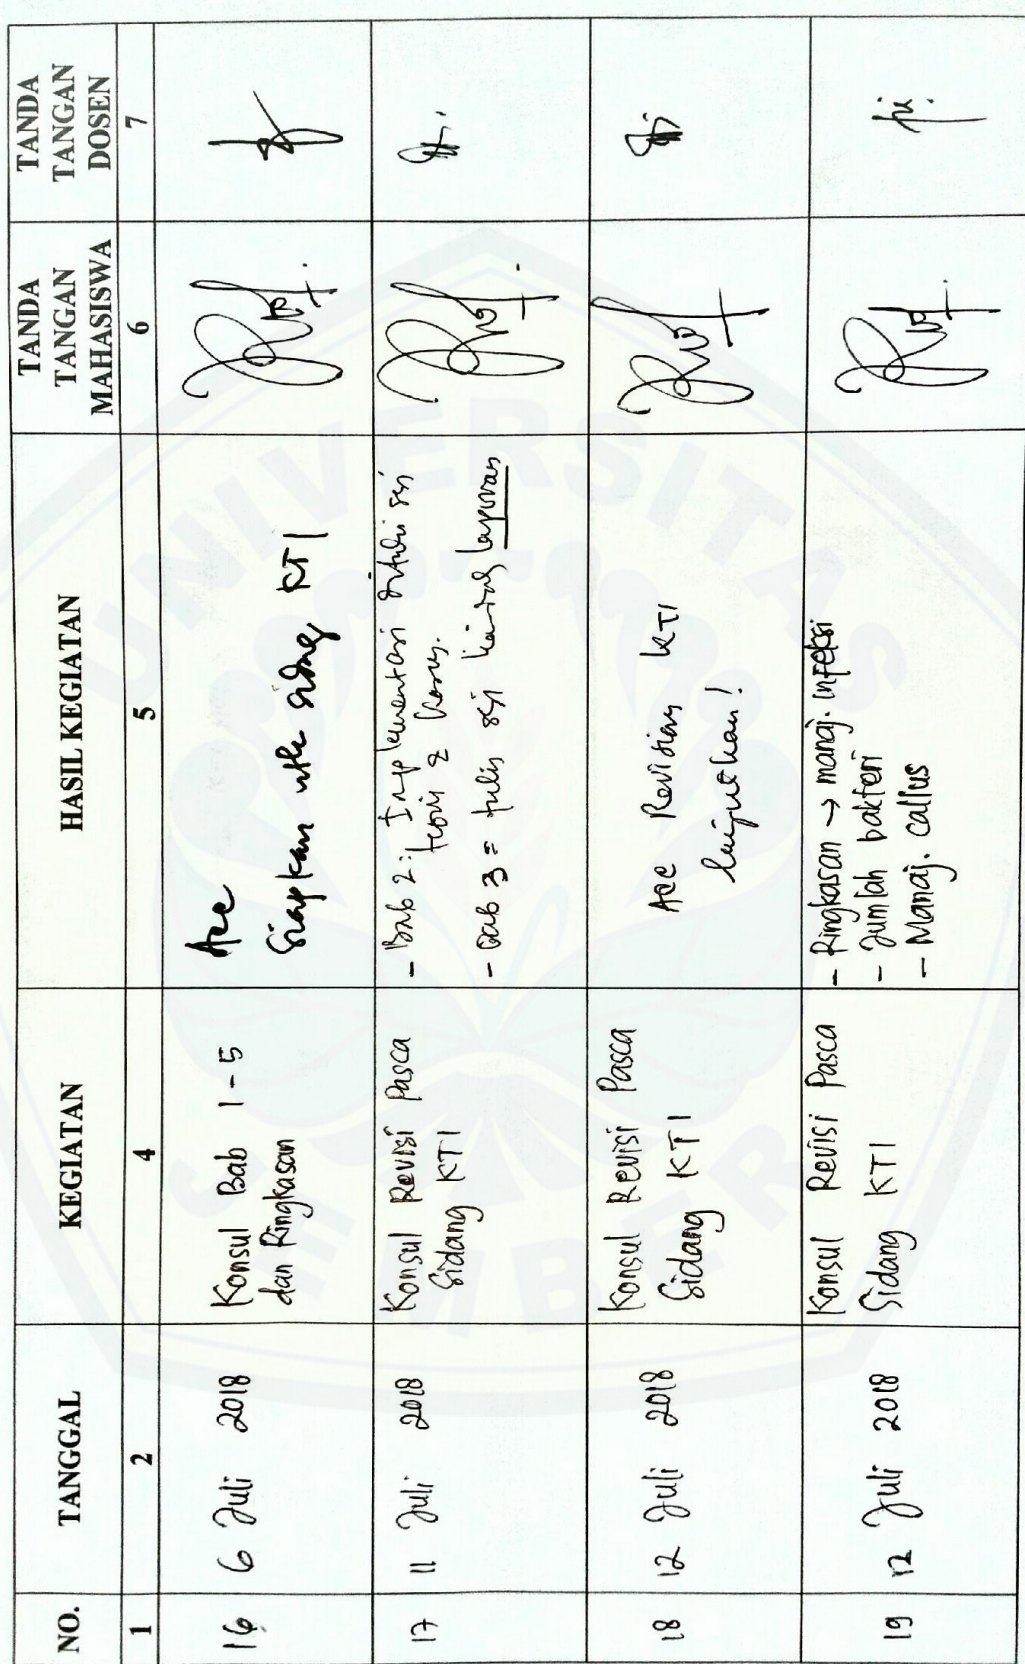 NO.
TANGGAL
KEGIATAN
HASIL KEGIATAN
TANDA
TANGAN
MAHASISWA
TANDA
TANGAN
DOSEN
1
2
4
5
6
7
16
6 Juli 2018
Konsul Bab 1-5
dan Ringkasan
Acc
Siapkan utk sidang KTI
17
11 Juli 2018
Konsul Revisi Pasca
Sidang KTI
- Bab 2: Implementasi ditulis
teori & kasus.
- Bab 3 = tulis laporan
18
12 Juli 2018
Konsul Revisi Pasca
Sidang KTI
Acc Revisi KTI
lanjutkan!
19
12 Juli 2018
Konsul Revisi Pasca
Sidang KTI
- Ringkasan → manaj. infeksi
- Jumlah bakteri
- Manaj. callus
UNIVERSITAS
JEMBER